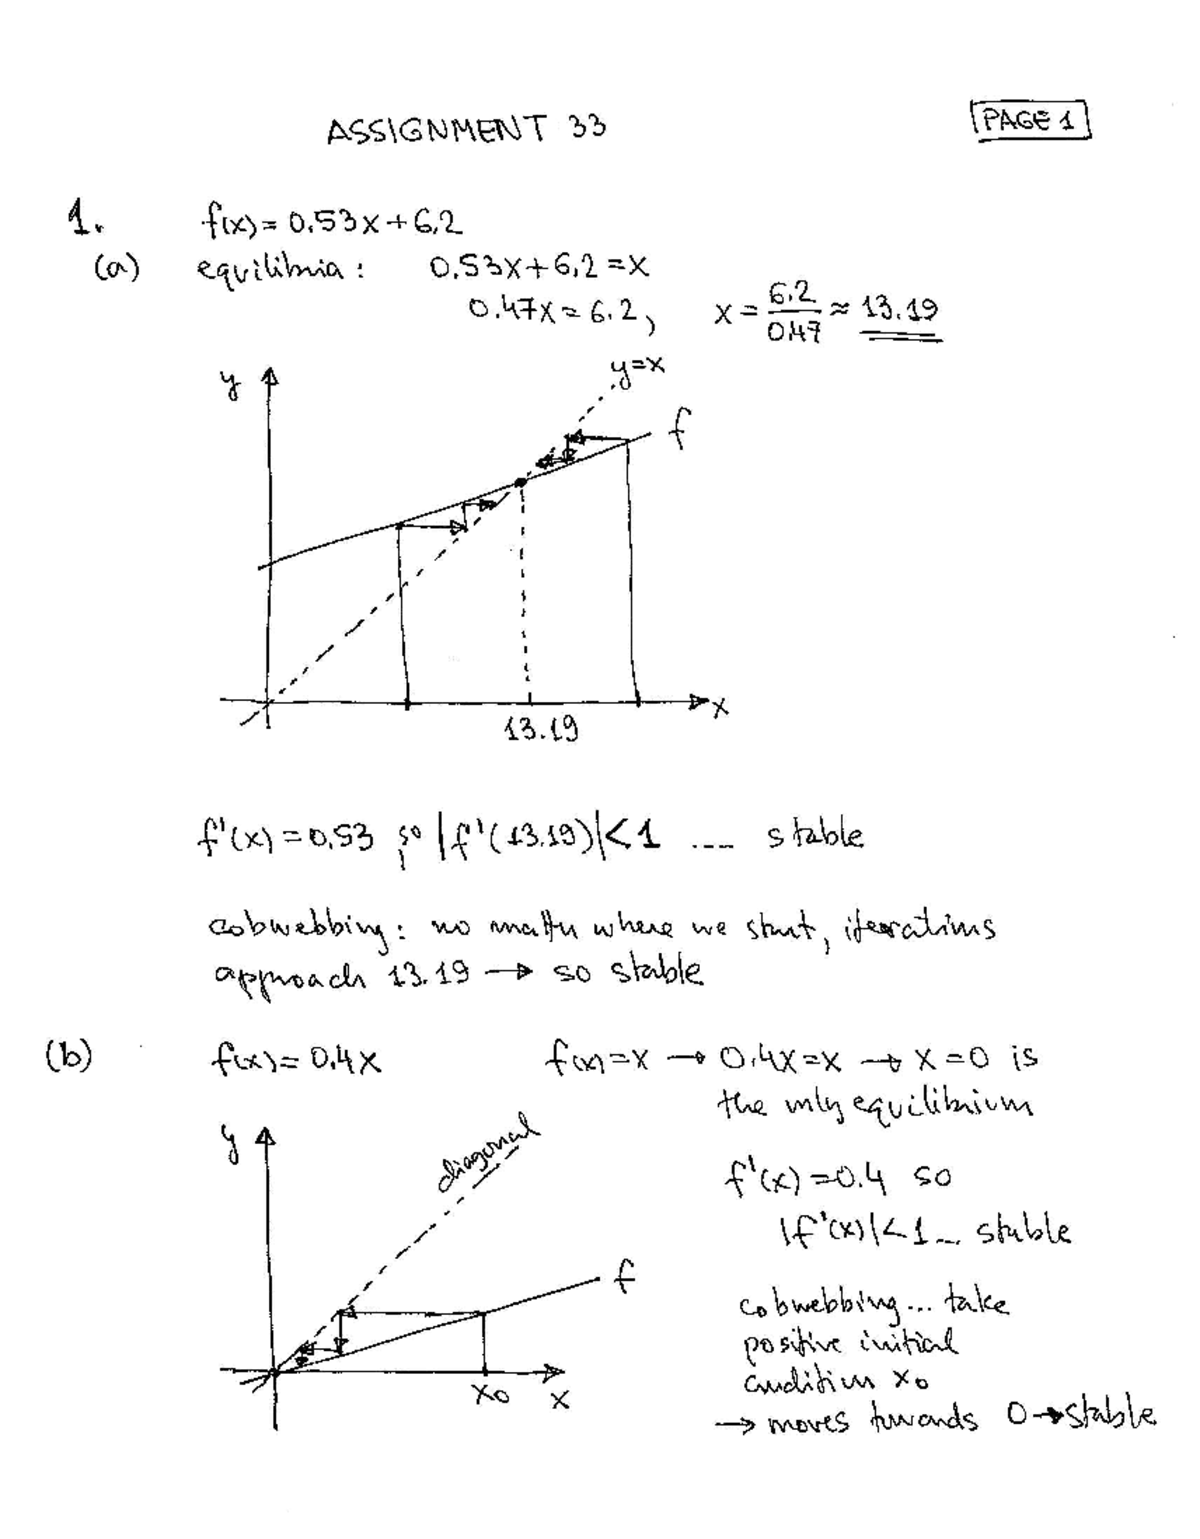 ASSIGNMENT 33
PAGE 1
1. f(x) = 0.53x + 6.2
(a) equilibria: 0.53x + 6.2 = x
0.47x = 6.2, x = 6.2/0.47 ≈ 13.19
y
y=x
f
x
13.19
f'(x) = 0.53, so |f'(13.19)| < 1 .... stable
cobwebbing: no matter where we start, iterations
approach 13.19 → so stable
(b) f(x) = 0.4x f(x) = x → 0.4x = x → x = 0 is
the only equilibrium
y
diagonal
f'(x) = 0.4 so
|f'(x)| < 1 ... stable
f
cobwebbing... take
positive initial
condition x₀
x₀ x
→ moves towards 0 → stable